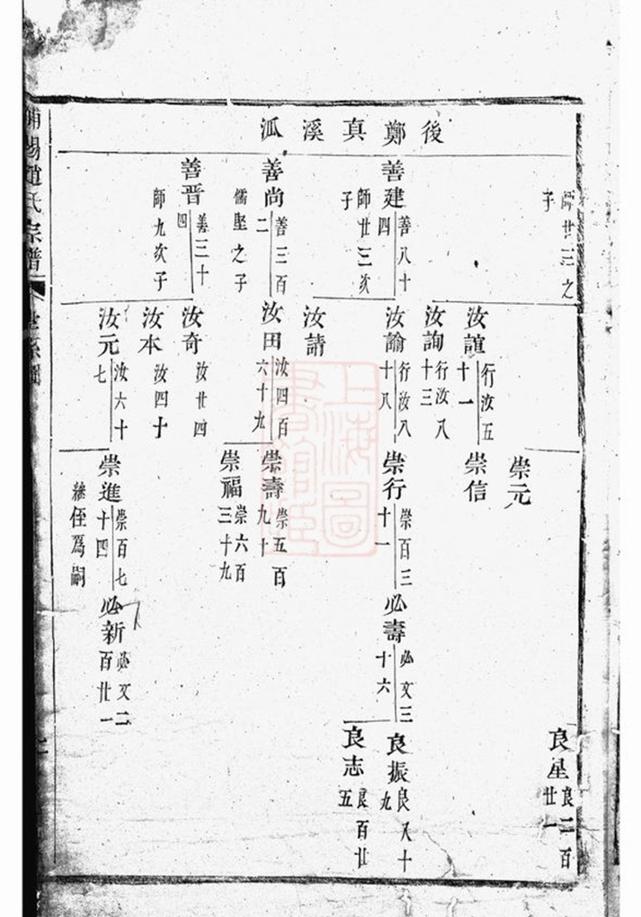 後鄭真溪泒
師廿三之子
善建 善八十四 師廿三次子
善尚 善三百二 儒堅之子
善晋 善三十四 師九次子
汝誼 行汝五十一
汝詢 行汝八十三
汝諭 行汝八十八
汝請
汝田 汝四百六十九
汝奇 汝廿四
汝本 汝四十
汝元 汝六十七
崇元
崇信
崇行 崇百三十一
崇壽 崇五百九十
崇福 崇六百三十九
崇進 崇百七十四 姪爲嗣
必壽 必文三十六
必新 必文二百廿一
良星 良二百廿一
良振 良八十九
良志 良百廿五
趙氏宗譜
世系圖